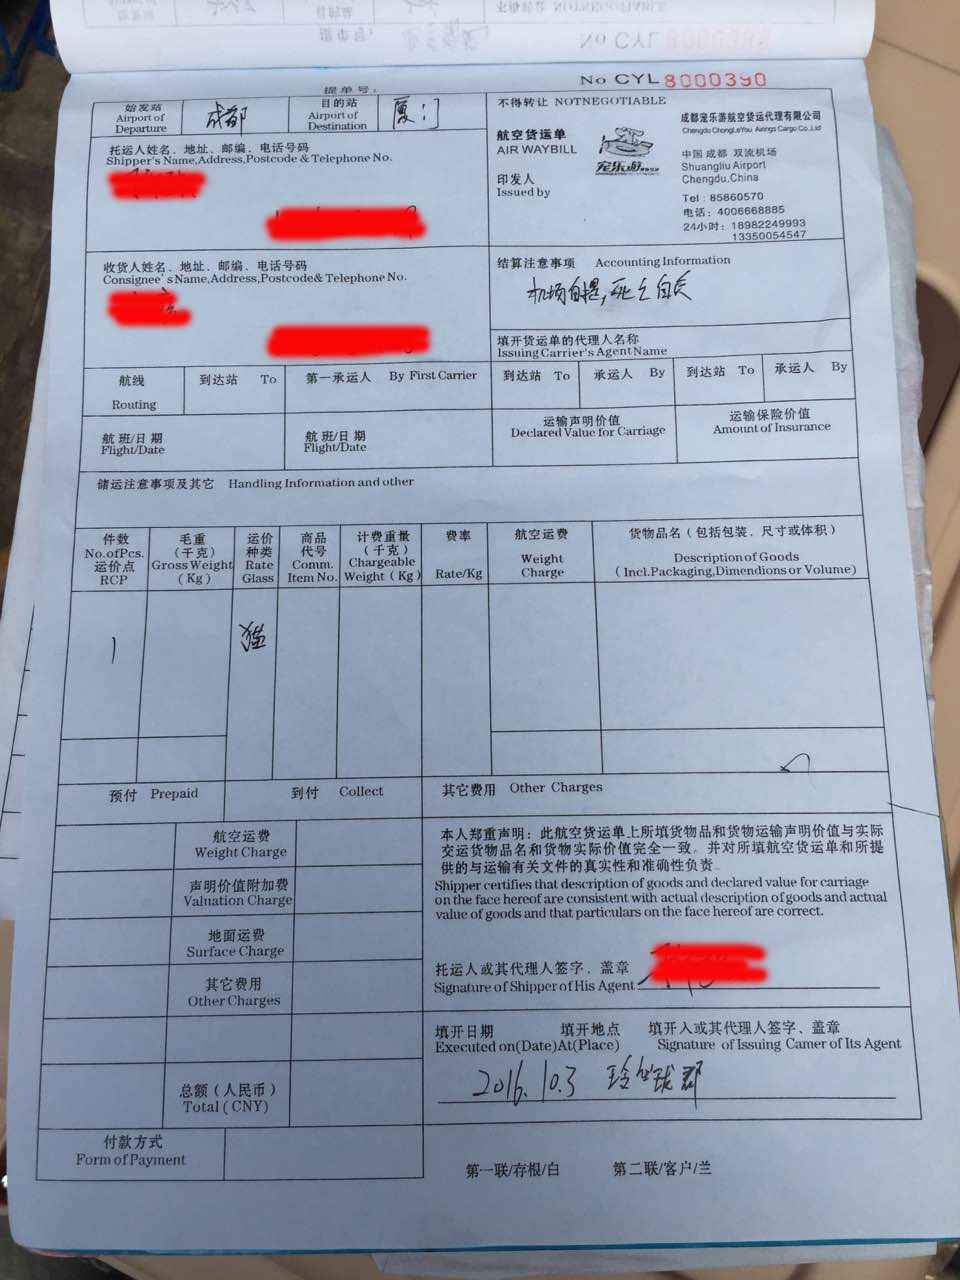 No CYL 8000390
提单号:
始发站
Airport of
Departure
成都
目的站
Airport of
Destination
厦门
不得转让 NOTNEGOTIABLE
航空货运单
AIR WAYBILL
印发人
Issued by
宠乐游
成都宠乐游航空货运代理有限公司
Chengdu ChongLeYou Airings Cargo Co.,Ltd
中国 成都 双流机场
Shuangliu Airport
Chengdu,China
Tel : 85860570
电话: 4006668885
24小时: 18982249993
13350054547
托运人姓名、地址、邮编、电话号码
Shipper's Name,Address,Postcode & Telephone No.
收货人姓名、地址、邮编、电话号码
Consignee's Name,Address,Postcode & Telephone No.
结算注意事项 Accounting Information
机场自提,死亡自负
填开货运单的代理人名称
Issuing Carrier's Agent Name
航线
Routing
到达站 To
第一承运人 By First Carrier
到达站 To
承运人 By
到达站 To
承运人 By
航班/日期
Flight/Date
航班/日期
Flight/Date
运输声明价值
Declared Value for Carriage
运输保险价值
Amount of Insurance
储运注意事项及其它 Handling Information and other
件数
No.ofPcs.
运价点
RCP
毛重
(千克)
Gross Weight
(Kg)
运价
种类
Rate
Glass
商品
代号
Comm.
Item No.
计费重量
(千克)
Chargeable
Weight (Kg)
费率
Rate/Kg
航空运费
Weight
Charge
货物品名(包括包装、尺寸或体积)
Description of Goods
(Incl.Packaging,Dimendions or Volume)
1
猫
预付 Prepaid
到付 Collect
其它费用 Other Charges
航空运费
Weight Charge
声明价值附加费
Valuation Charge
地面运费
Surface Charge
其它费用
Other Charges
总额(人民币)
Total (CNY)
付款方式
Form of Payment
本人郑重声明:此航空货运单上所填货物品和货物运输声明价值与实际
交运货物品名和货物实际价值完全一致。并对所填航空货运单和所提
供的与运输有关文件的真实性和准确性负责。
Shipper certifies that description of goods and declared value for carriage
on the face hereof are consistent with actual description of goods and actual
value of goods and that particulars on the face hereof are correct.
托运人或其代理人签字、盖章
Signature of Shipper of His Agent
填开日期 填开地点 填开入或其代理人签字、盖章
Executed on(Date)At(Place) Signature of Issuing Camer of Its Agent
2016.10.3
第一联/存根/白 第二联/客户/兰